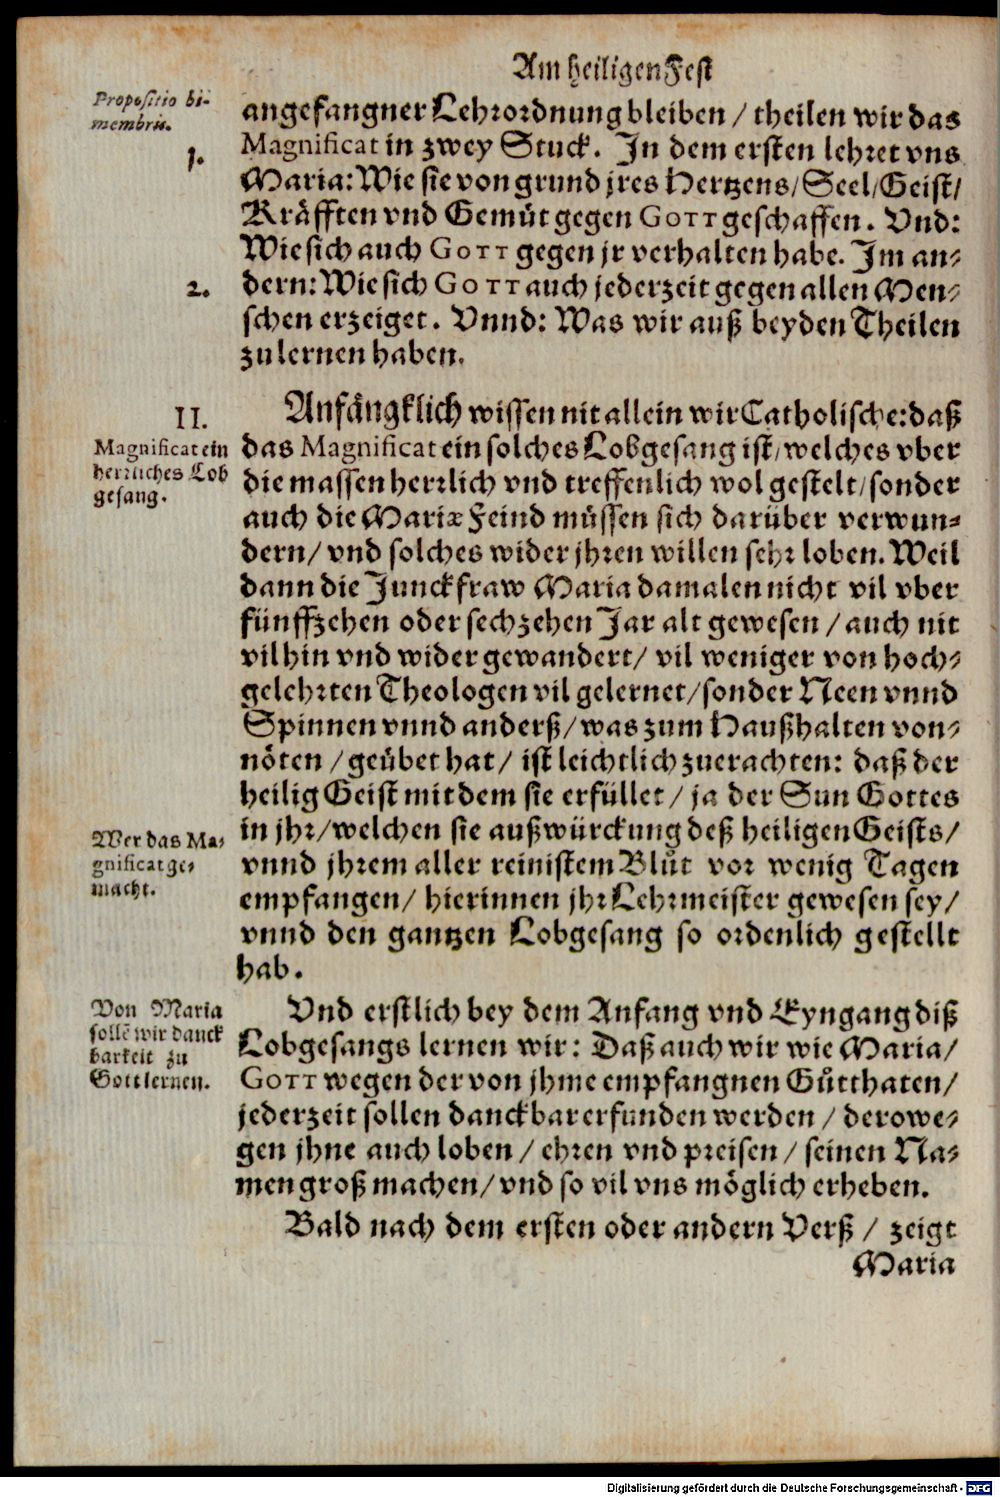 Am heiligen Fest
Propositio bi-
membris.
angefangner Lehrordnung bleiben / theilen wir das
1.
Magnificat in zwey Stuck. In dem ersten lehret vns
Maria: Wie sie von grund jres Hertzens / Seel / Geist /
Kräfften vnd Gemüt gegen GOTT geschaffen. Vnd:
Wie sich auch GOTT gegen jr verhalten habe. Im an-
2.
dern: Wie sich GOTT auch jederzeit gegen allen Men-
schen erzeiget. Vnnd: Was wir auß beyden Theilen
zu lernen haben.
II.
Anfängklich wissen nit allein wir Catholische: daß
Magnificat ein
herrliches Lob
gesang.
das Magnificat ein solches Lobgesang ist / welches vber
die massen herrlich vnd treffenlich wol gestelt / sonder
auch die Mariæ Feind müssen sich darüber verwun-
dern / vnd solches wider jhren willen sehr loben. Weil
dann die Junckfraw Maria damalen nicht vil vber
fünffzehen oder sechzehen Jar alt gewesen / auch nit
vil hin vnd wider gewandert / vil weniger von hoch-
gelehrten Theologen vil gelernet / sonder Neen vnnd
Spinnen vnnd anderß / was zum Haußhalten von-
nöten / geübet hat / ist leichtlich zuerachten: daß der
heilig Geist mit dem sie erfüllet / ja der Sun Gottes
Wer das Ma-
gnificat ge-
macht.
in jhr / welchen sie außwürckung deß heiligen Geists /
vnnd jhrem aller reinistem Blůt vor wenig Tagen
empfangen / hierinnen jhr Lehrmeister gewesen sey /
vnnd den gantzen Lobgesang so ordenlich gestellt
hab.
Von Maria
sollē wir danck
barkeit zu
Gott lernen.
Vnd erstlich bey dem Anfang vnd Eyngang diß
Lobgesangs lernen wir: Daß auch wir wie Maria /
GOTT wegen der von jhme empfangnen Gůtthaten /
jederzeit sollen danckbar erfunden werden / derowe-
gen jhne auch loben / ehren vnd preisen / seinen Na-
men groß machen / vnd so vil vns möglich erheben.
Bald nach dem ersten oder andern Verß / zeigt
Maria
Digitalisierung gefördert durch die Deutsche Forschungsgemeinschaft - DFG